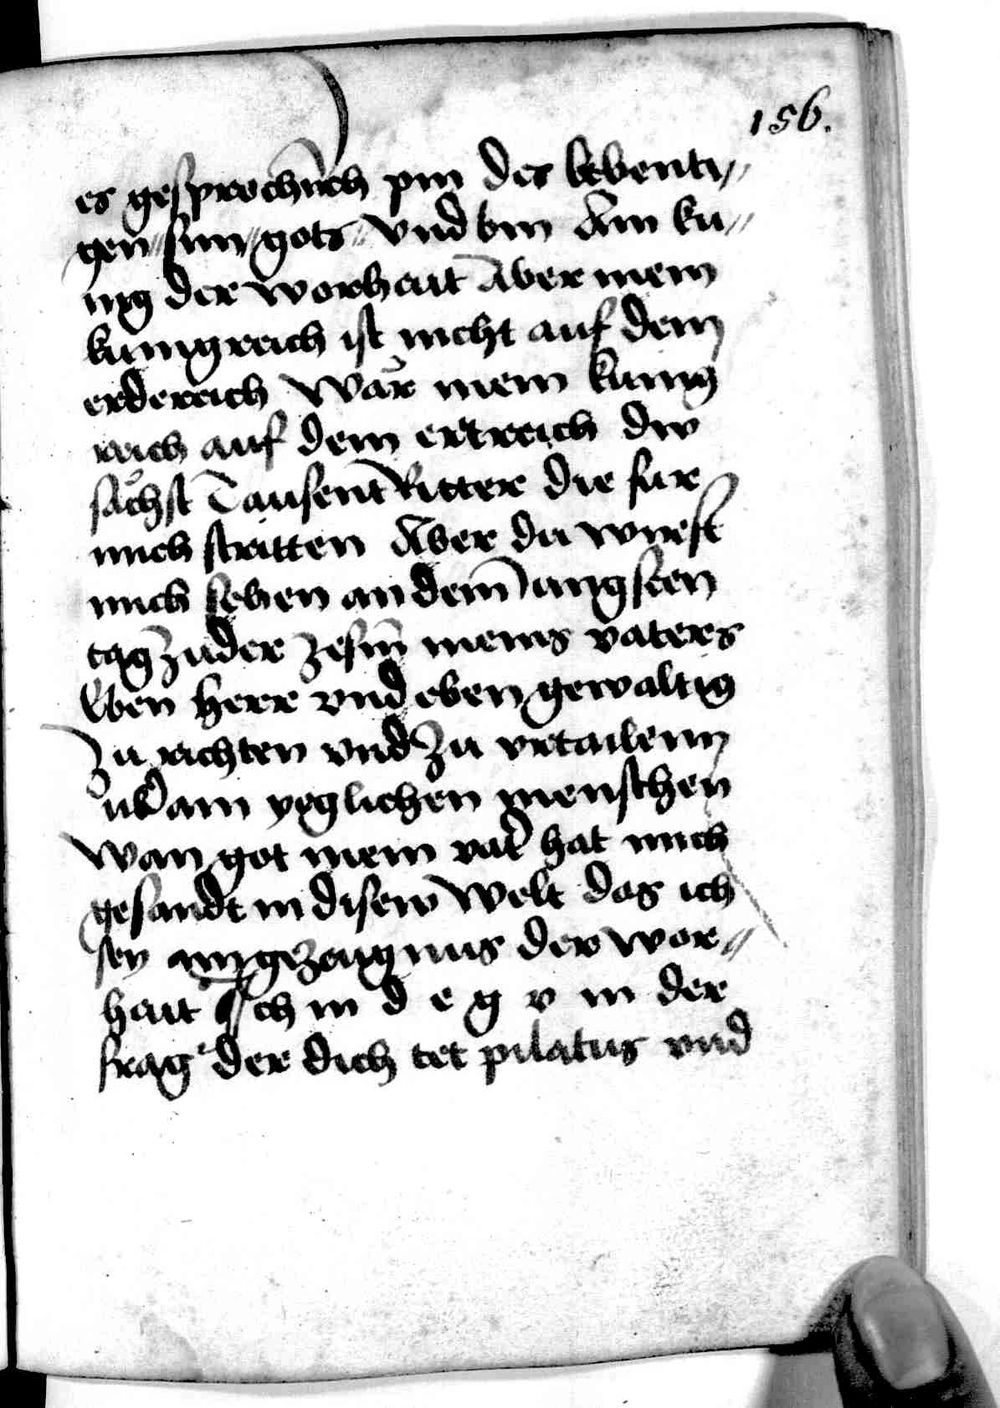 156.
es gesprochen ich pin des lebenti〃
gen〃sun〃gots〃 vnd bin Ain ku〃
nig der worhait Aber mein
kunigreich ist nicht auf dem
erdereich Wår mein kunig
reich auf dem ertreich dw
såchst Tausent Ritter die fur
mich stritten Aber du wirst
mich sehen an dem iungsten
tag zu der zesm̄ meins vaters
Eben herr vnd eben gewaltig
zu richten vnd zu vrtailenn
ainem yeglichen menschen
wan got mein vat̄ hat mich
gesandt in disew welt das ich
sey ain gezeugnus der wor〃
hait Ich m d e g v in der
frag der dich tet pilatus vnd